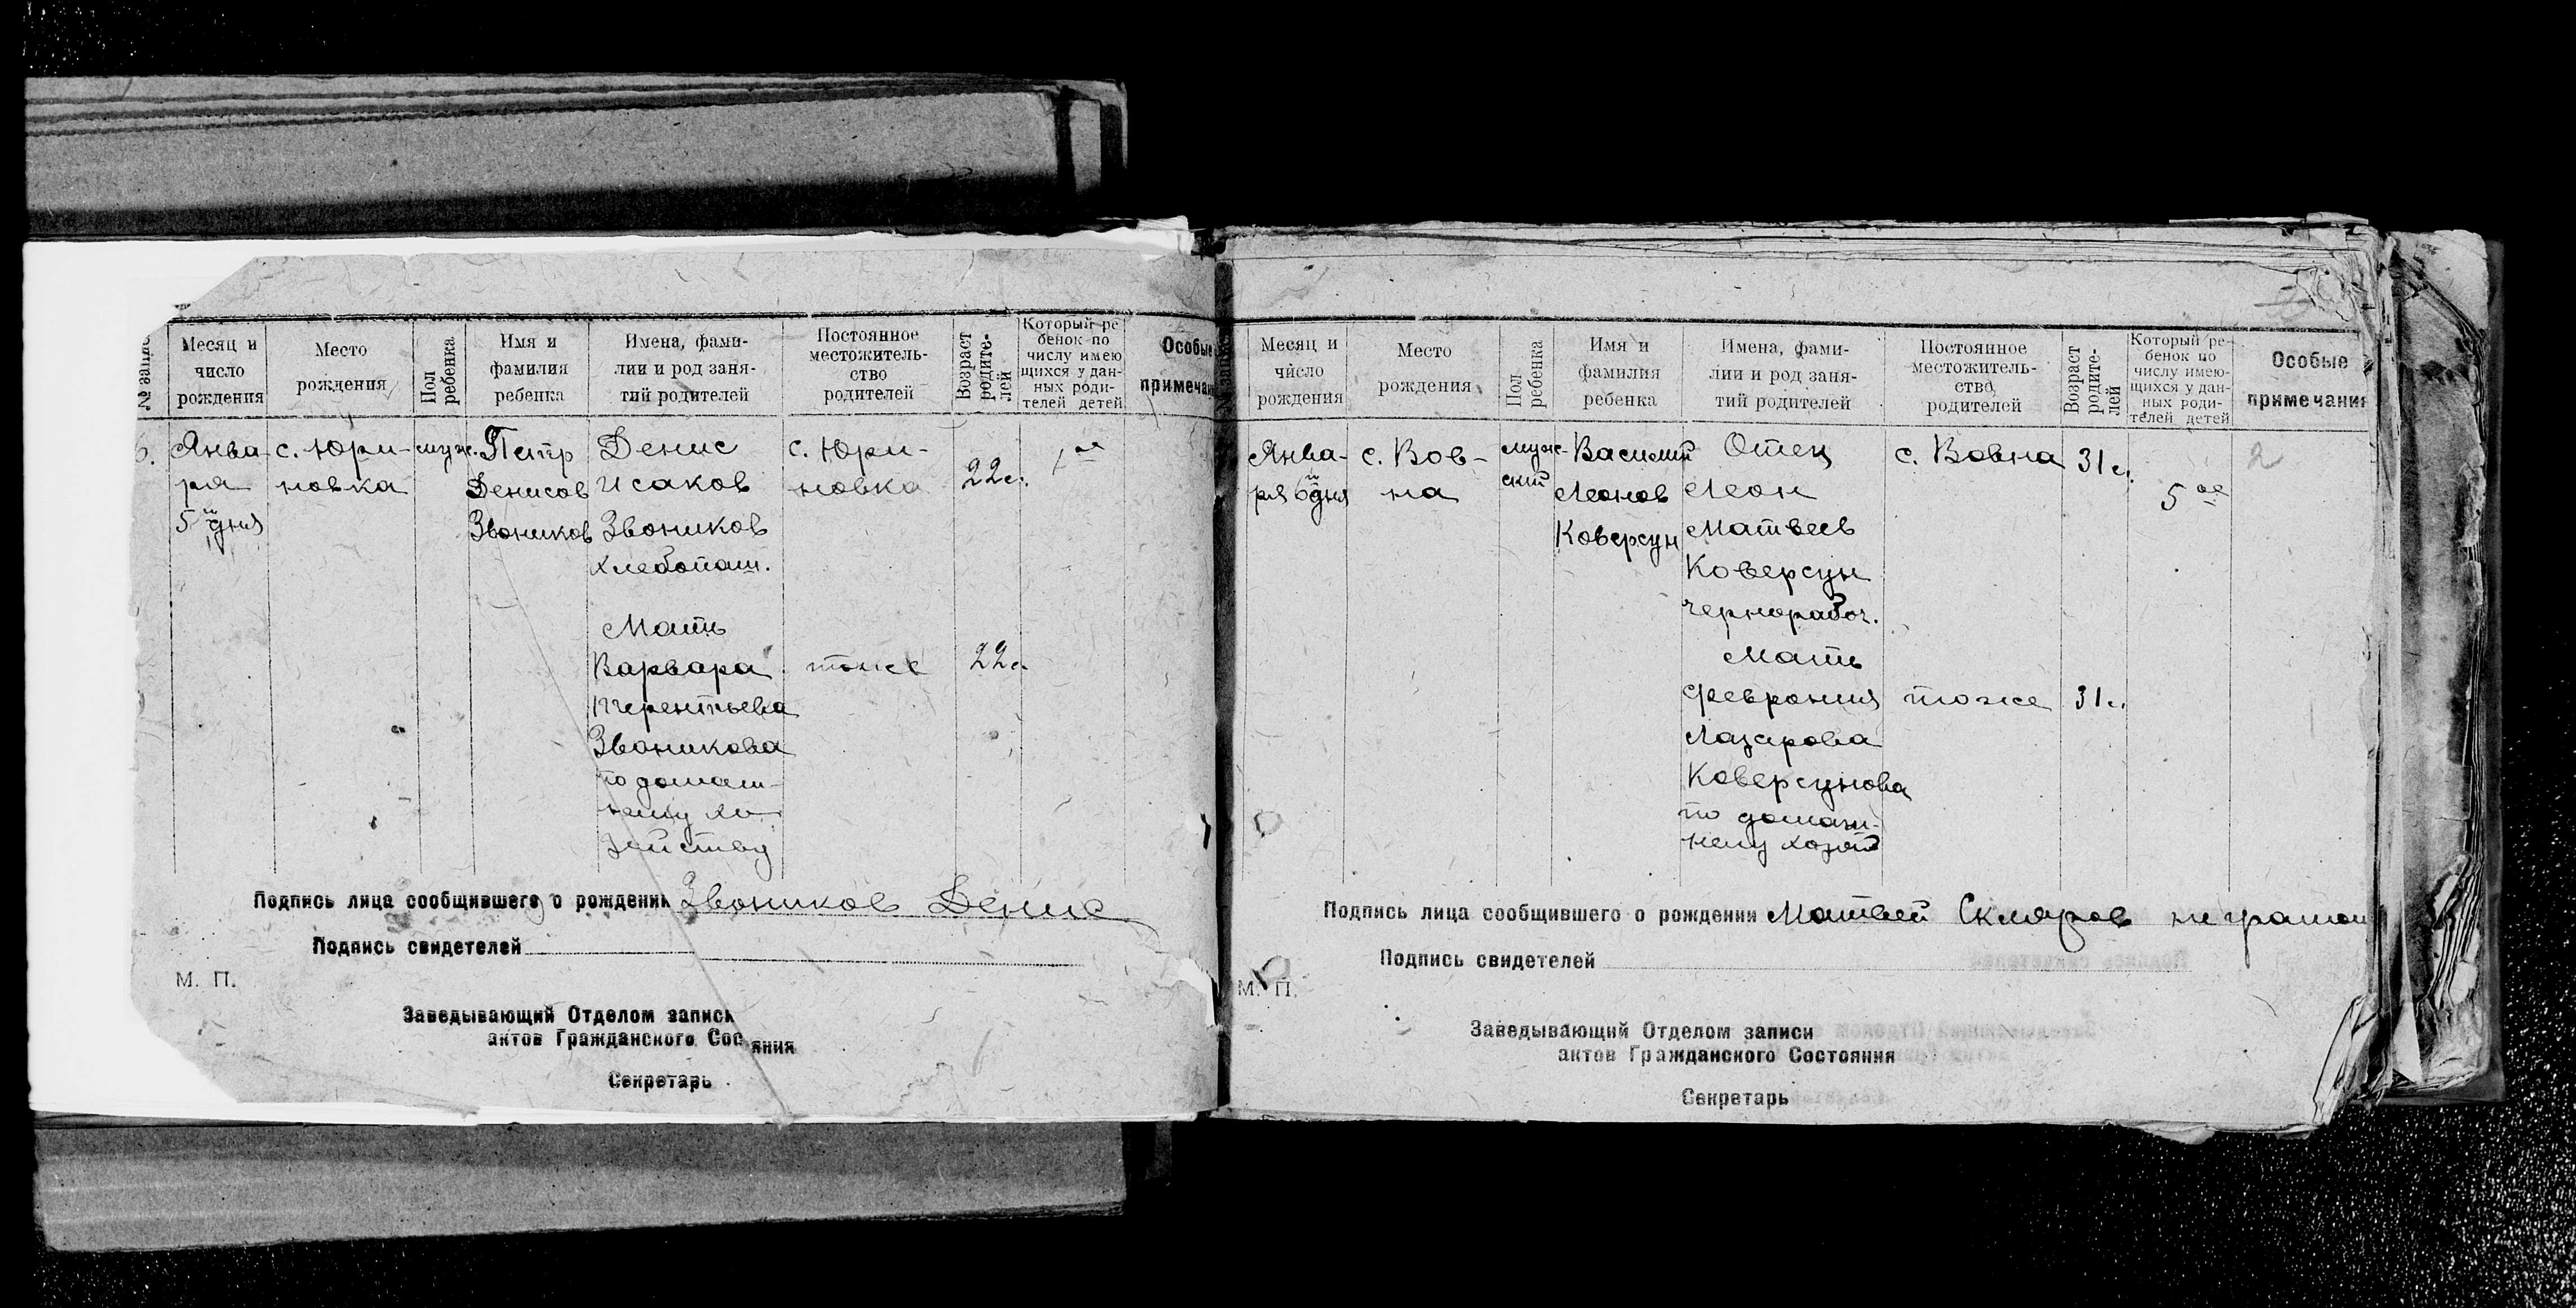 № запис
Месяц и
число
рождения
Место
рождения
Пол
ребенка
Имя и
фамилия
ребенка
Имена, фами-
лии и род заня-
тий родителей
Постоянное
местожитель-
ство
родителей
Возраст
родите-
лей
Который ре-
бенок по
числу имею
щихся у дан-
ных роди-
телей детей
Особые
примечан
6.
Янва-
ря
5й дня
с. Юри-
новка
муж.
Петр
Денисов
Звоников
Денис
Исаков
Звоников
хлебопаш.
Мать
Варвара
Терентьева
Звоникова
по домаш-
нему хо-
зяйству
с. Юри-
новка
тоже
22 г.
22 г.
1ое
Подпись лица сообщившего о рождении Звоников Денис
Подпись свидетелей
М. П.
Заведывающий Отделом записи
актов Гражданского Сос яния
Секретарь
Месяц и
число
рождения
Место
рождения
Пол
ребенка
Имя и
фамилия
ребенка
Имена, фами-
лии и род заня-
тий родителей
Постоянное
местожитель-
ство
родителей
Возраст
родите-
лей
Который ре-
бенок по
числу имею-
щихся у дан-
ных роди-
телей детей
Особые
примечания
Янва-
ря 6й дня
с. Вов-
на
муж-
ский
Василий
Леонов
Коверсун
Отец
Леон
Матвеев
Коверсун
чернорабоч.
Мать
Феврония
Лазарова
Коверсунова
по домаш-
нему хозяй
с. Вовна
тоже
31 г.
31 г.
5ое
2
Подпись лица сообщившего о рождении Матвей Скляров неграмот
Подпись свидетелей
М. П.
Заведывающий Отделом записи
актов Гражданского Состояния
Секретарь